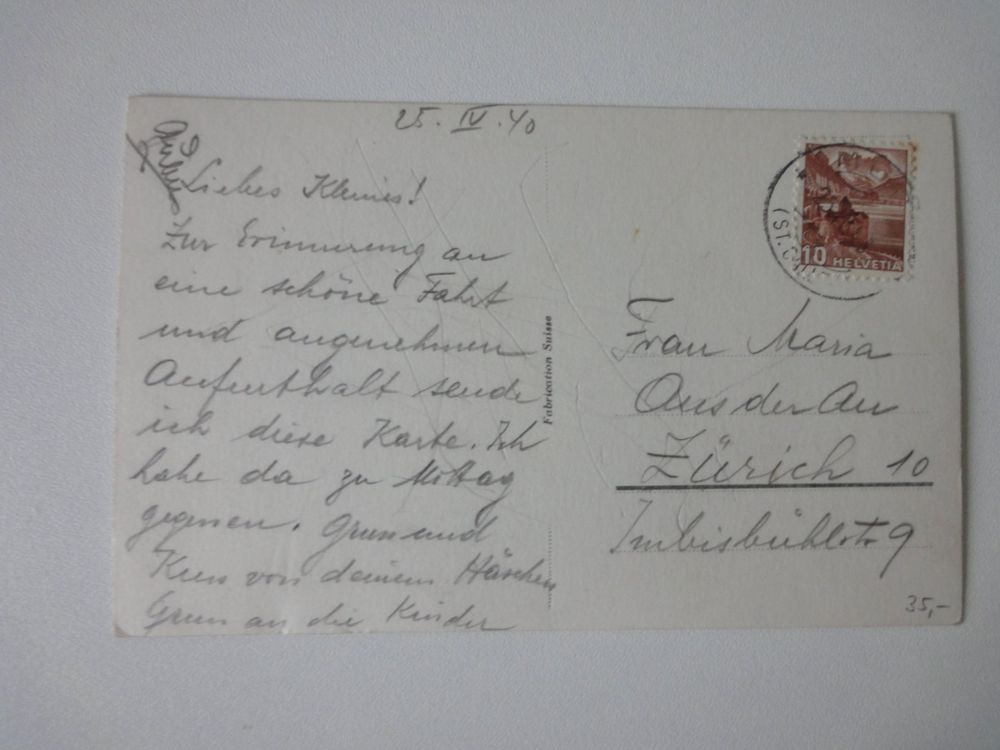 25. IV. 40
Liebes Kleines!
Zur Erinnerung an
eine schöne Fahrt
und angenehmen
Aufenthalt sende
ich diese Karte. Ich
habe da zu Mittag
gegessen. Gruss und
Kuss von deinem Häschen
Gruss an die Kinder
Fabrication Suisse
(ST.
10 HELVETIA
Frau Maria
Aus der Au
Zürich 10
Imbisbühlstr 9
35,-